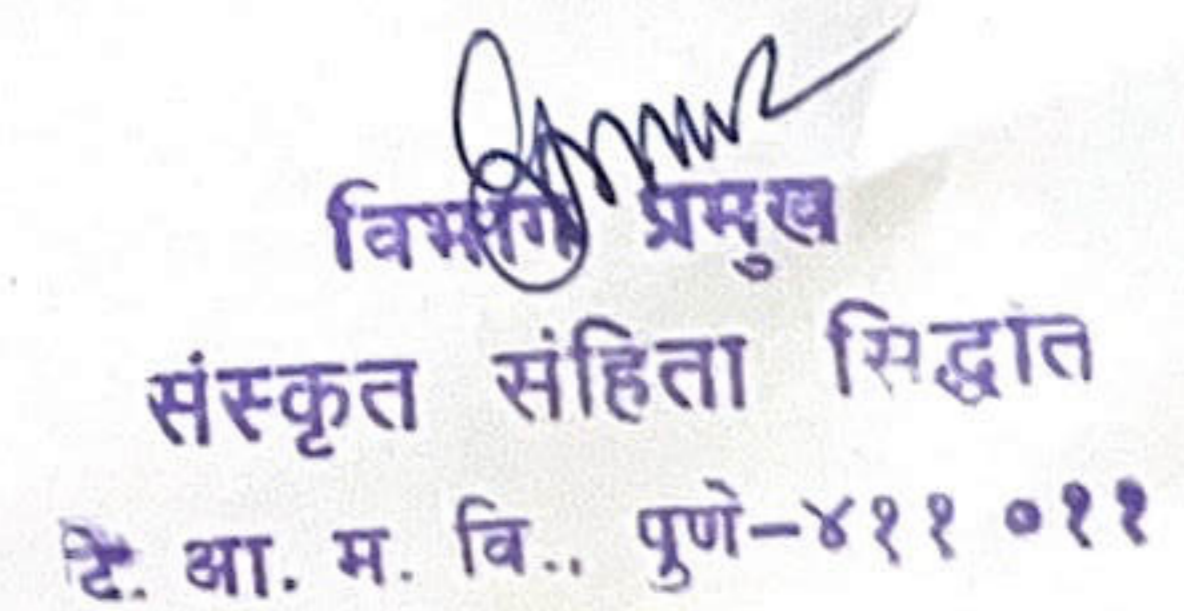 विभाग प्रमुख
संस्कृत संहिता सिद्धांत
टि. आ. म. वि.. पुणे-४११ ०११